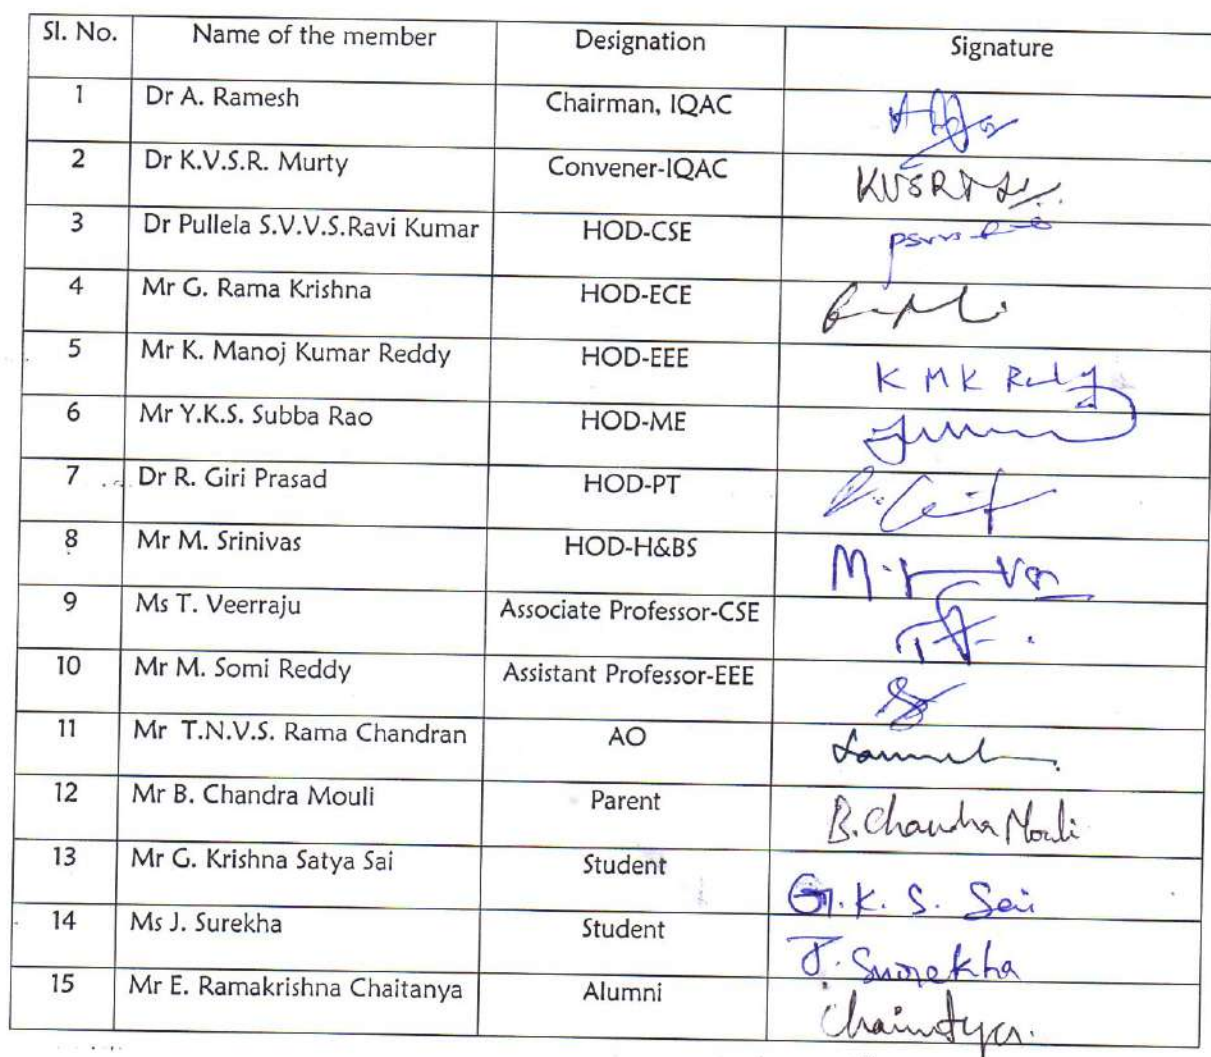 Sl. No. Name of the member Designation Signature
1 Dr A. Ramesh Chairman, IQAC
2 Dr K.V.S.R. Murty Convener-IQAC KVSRM
3 Dr Pullela S.V.V.S.Ravi Kumar HOD-CSE psvvs
4 Mr G. Rama Krishna HOD-ECE
5 Mr K. Manoj Kumar Reddy HOD-EEE K M K Reddy
6 Mr Y.K.S. Subba Rao HOD-ME
7 Dr R. Giri Prasad HOD-PT
8 Mr M. Srinivas HOD-H&BS
9 Ms T. Veerraju Associate Professor-CSE
10 Mr M. Somi Reddy Assistant Professor-EEE
11 Mr T.N.V.S. Rama Chandran AO
12 Mr B. Chandra Mouli Parent B. Chandra Mouli
13 Mr G. Krishna Satya Sai Student G. K. S. Sai
14 Ms J. Surekha Student J. Surekha
15 Mr E. Ramakrishna Chaitanya Alumni Chaintya